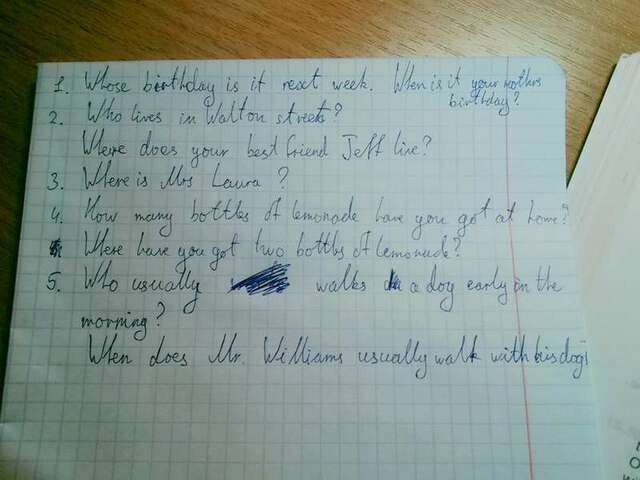 1. Whose birthday is it next week. When is it your mothers
birthday?
2. Who lives in Walton street?
Where does your best friend Jeff live?
3. Where is Mrs Laura ?
4. How many bottles of lemonade have you got at home?
Where have you got two bottles of lemonade?
5. Who usually walks a dog early in the
morning ?
When does Mr. Williams usually walk with his dog?